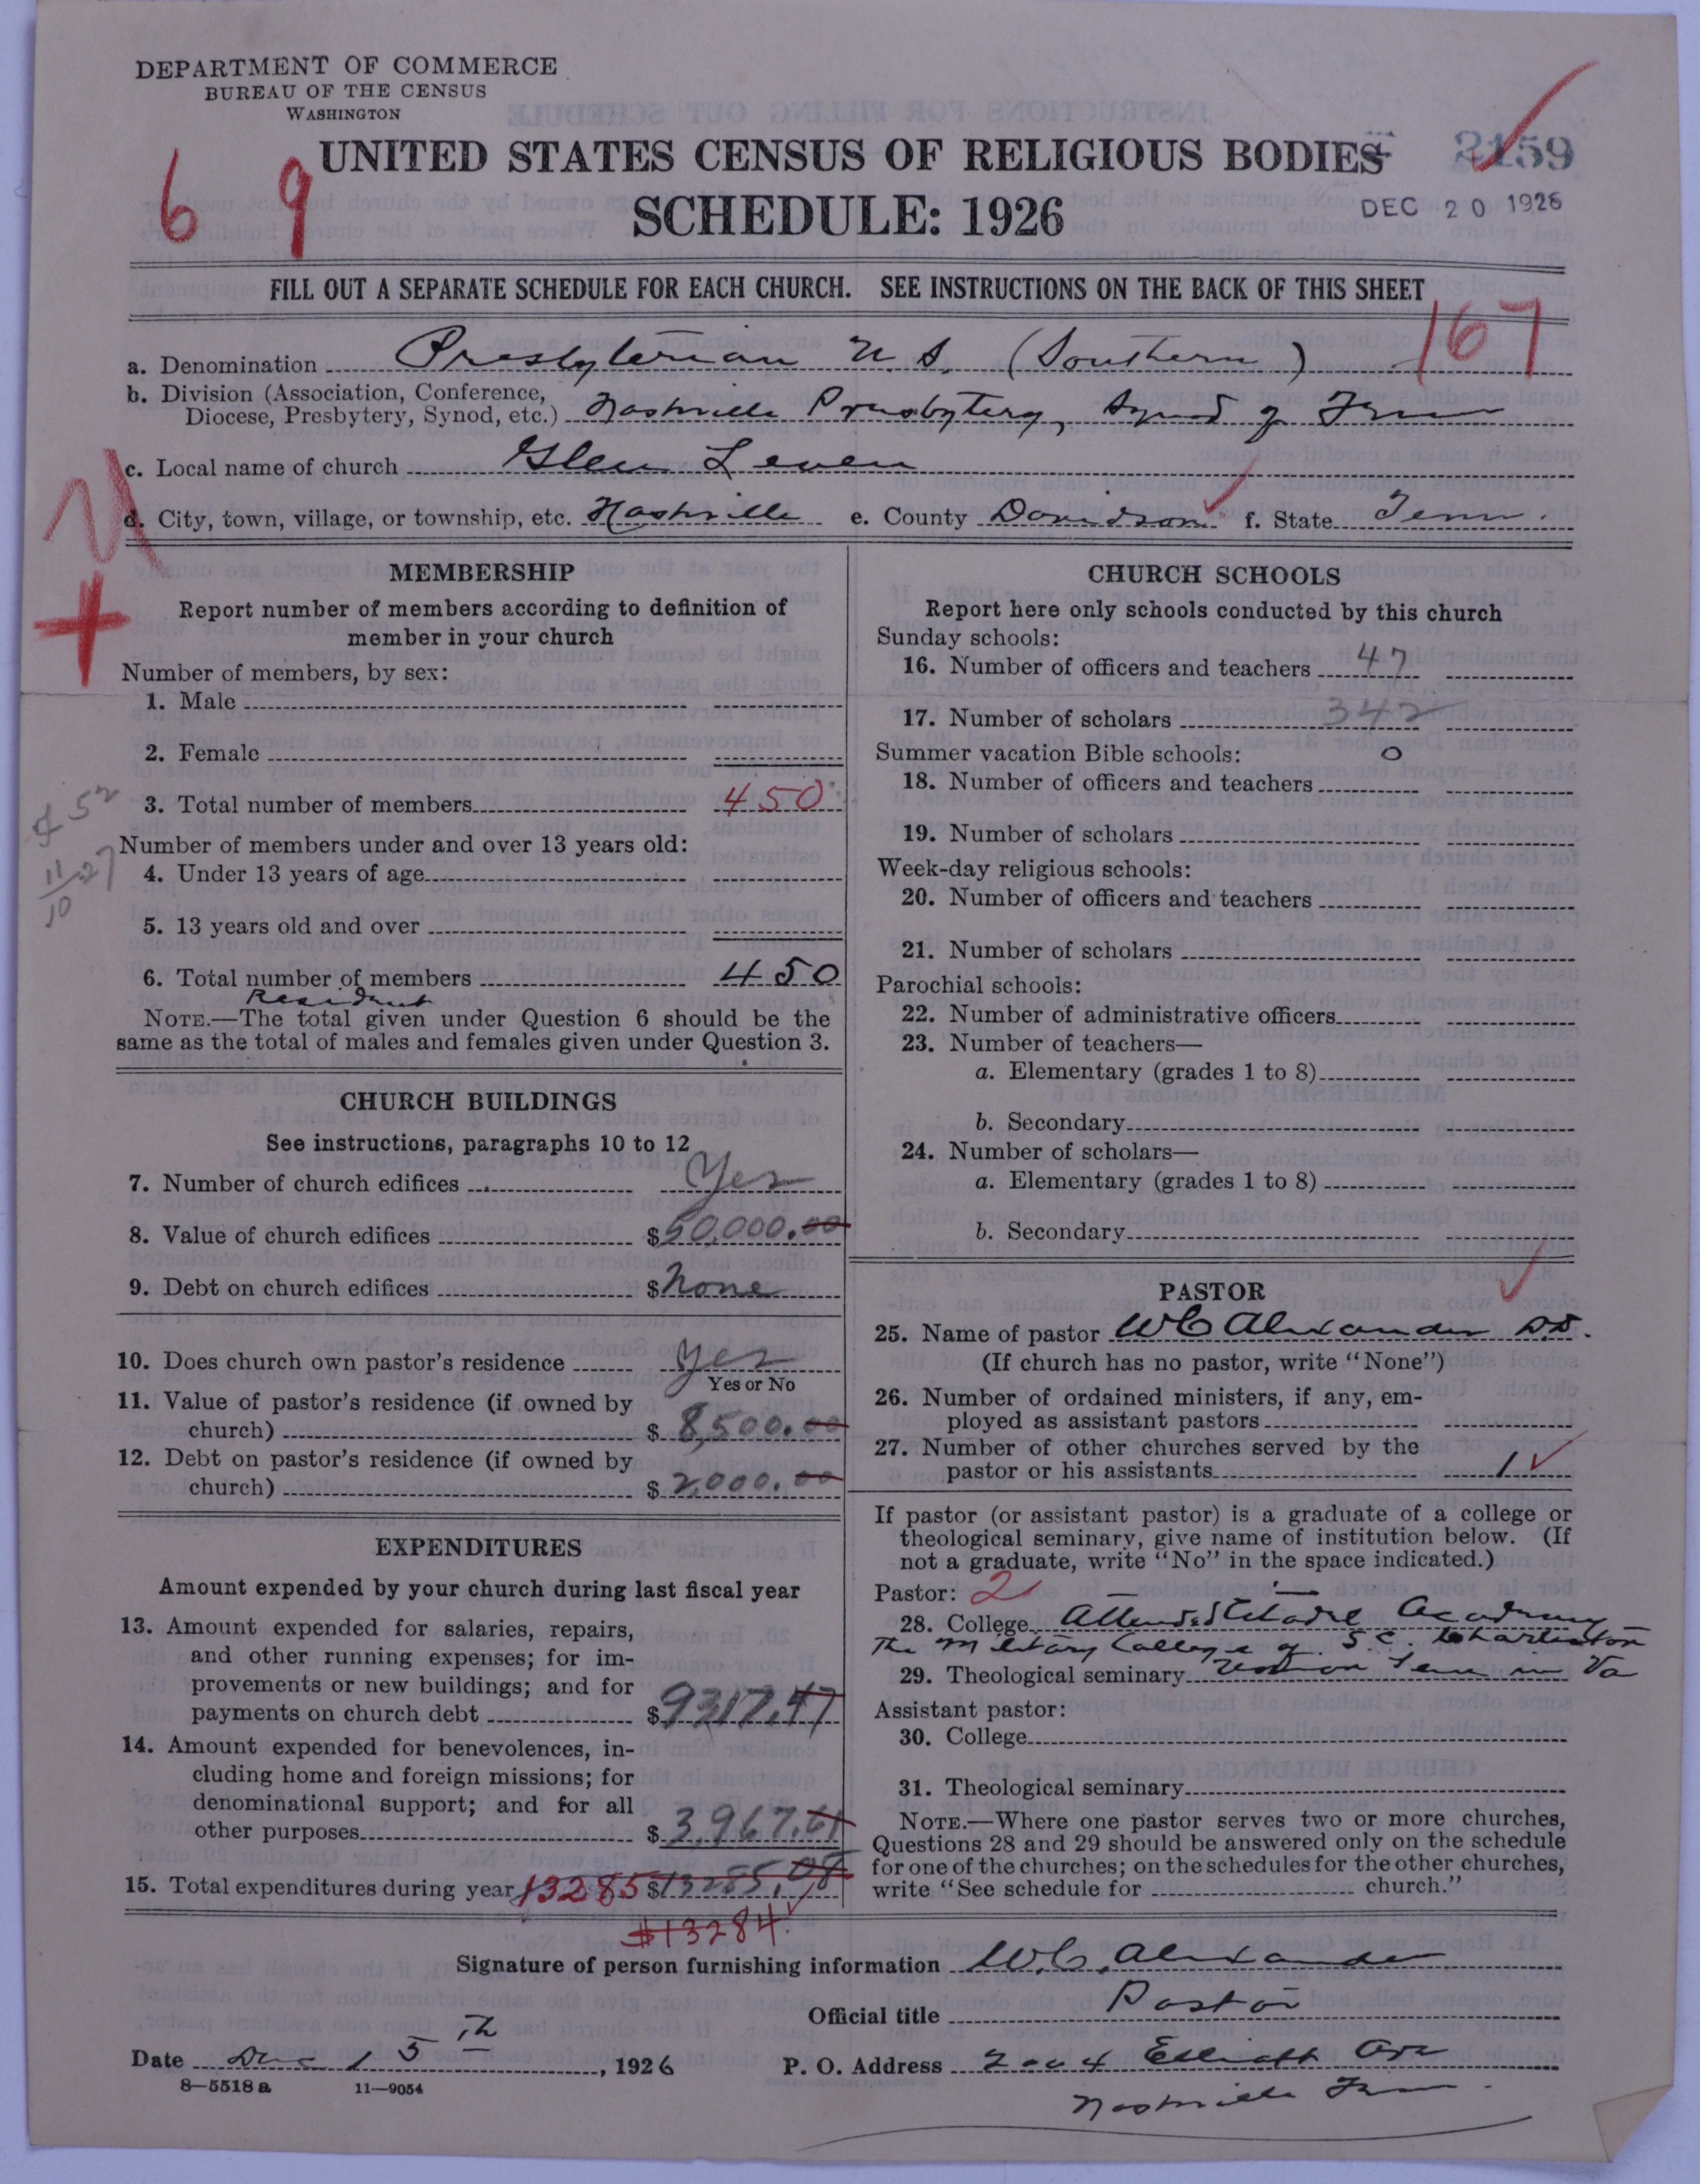 DEPARTMENT OF COMMERCE
BUREAU OF THE CENSUS
WASHINGTON
6 9
UNITED STATES CENSUS OF RELIGIOUS BODIES
2159
SCHEDULE: 1926
DEC 20 1926
FILL OUT A SEPARATE SCHEDULE FOR EACH CHURCH. SEE INSTRUCTIONS ON THE BACK OF THIS SHEET
167
a. Denomination Presbyterian U.S. (Southern)
b. Division (Association, Conference,
Diocese, Presbytery, Synod, etc.) Nashville Presbytery, Synod of Tenn
c. Local name of church Glen Leven
d. City, town, village, or township, etc. Nashville e. County Davidson f. State Tenn.
MEMBERSHIP
Report number of members according to definition of
member in your church
Number of members, by sex:
1. Male
2. Female
3. Total number of members 450
452
Number of members under and over 13 years old:
4. Under 13 years of age
11/10 27
5. 13 years old and over
6. Total number of members 450
Resident
NOTE.—The total given under Question 6 should be the
same as the total of males and females given under Question 3.
CHURCH BUILDINGS
See instructions, paragraphs 10 to 12
7. Number of church edifices Yes
8. Value of church edifices $50,000.00
9. Debt on church edifices $None
10. Does church own pastor's residence Yes
Yes or No
11. Value of pastor's residence (if owned by
church) $ 8,500.00
12. Debt on pastor's residence (if owned by
church) $ 2,000.00
EXPENDITURES
Amount expended by your church during last fiscal year
13. Amount expended for salaries, repairs,
and other running expenses; for im-
provements or new buildings; and for
payments on church debt $9317.47
14. Amount expended for benevolences, in-
cluding home and foreign missions; for
denominational support; and for all
other purposes $3,967.61
15. Total expenditures during year 13285 $13285.08
$13284
CHURCH SCHOOLS
Report here only schools conducted by this church
Sunday schools:
16. Number of officers and teachers 47
17. Number of scholars 342
Summer vacation Bible schools: 0
18. Number of officers and teachers
19. Number of scholars
Week-day religious schools:
20. Number of officers and teachers
21. Number of scholars
Parochial schools:
22. Number of administrative officers
23. Number of teachers—
a. Elementary (grades 1 to 8)
b. Secondary
24. Number of scholars—
a. Elementary (grades 1 to 8)
b. Secondary
PASTOR
25. Name of pastor W C Alexander D.D.
(If church has no pastor, write "None")
26. Number of ordained ministers, if any, em-
ployed as assistant pastors
27. Number of other churches served by the
pastor or his assistants 1
If pastor (or assistant pastor) is a graduate of a college or
theological seminary, give name of institution below. (If
not a graduate, write "No" in the space indicated.)
Pastor: 2
28. College Attended Citadel Academy
The Military College of S.C. Charleston
29. Theological seminary Union Sem in Va
Assistant pastor:
30. College
31. Theological seminary
NOTE.—Where one pastor serves two or more churches,
Questions 28 and 29 should be answered only on the schedule
for one of the churches; on the schedules for the other churches,
write "See schedule for church."
Signature of person furnishing information W.C. Alexander
Official title Pastor
Date Dec 15th, 1926 P. O. Address 2004 Elliott Ave
8—5518 a 11—9054
Nashville Tenn.